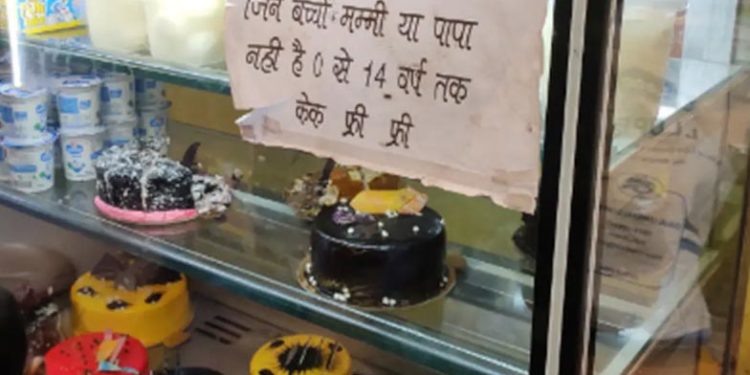 जिन बच्चो मम्मी या पापा
नही है 0 से 14 वर्ष तक
केक फ्री फ्री